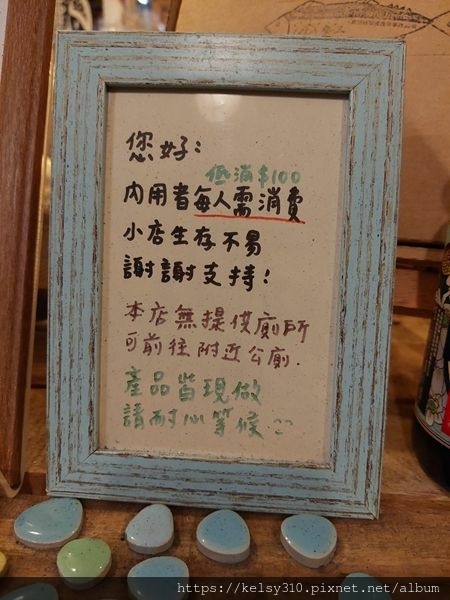 您好：
低消$100
內用者每人需消費
小店生存不易
謝謝支持！
本店無提供廁所
可前往附近公廁.
產品皆現做
請耐心等候
https://kelsy310.pixnet.net/album